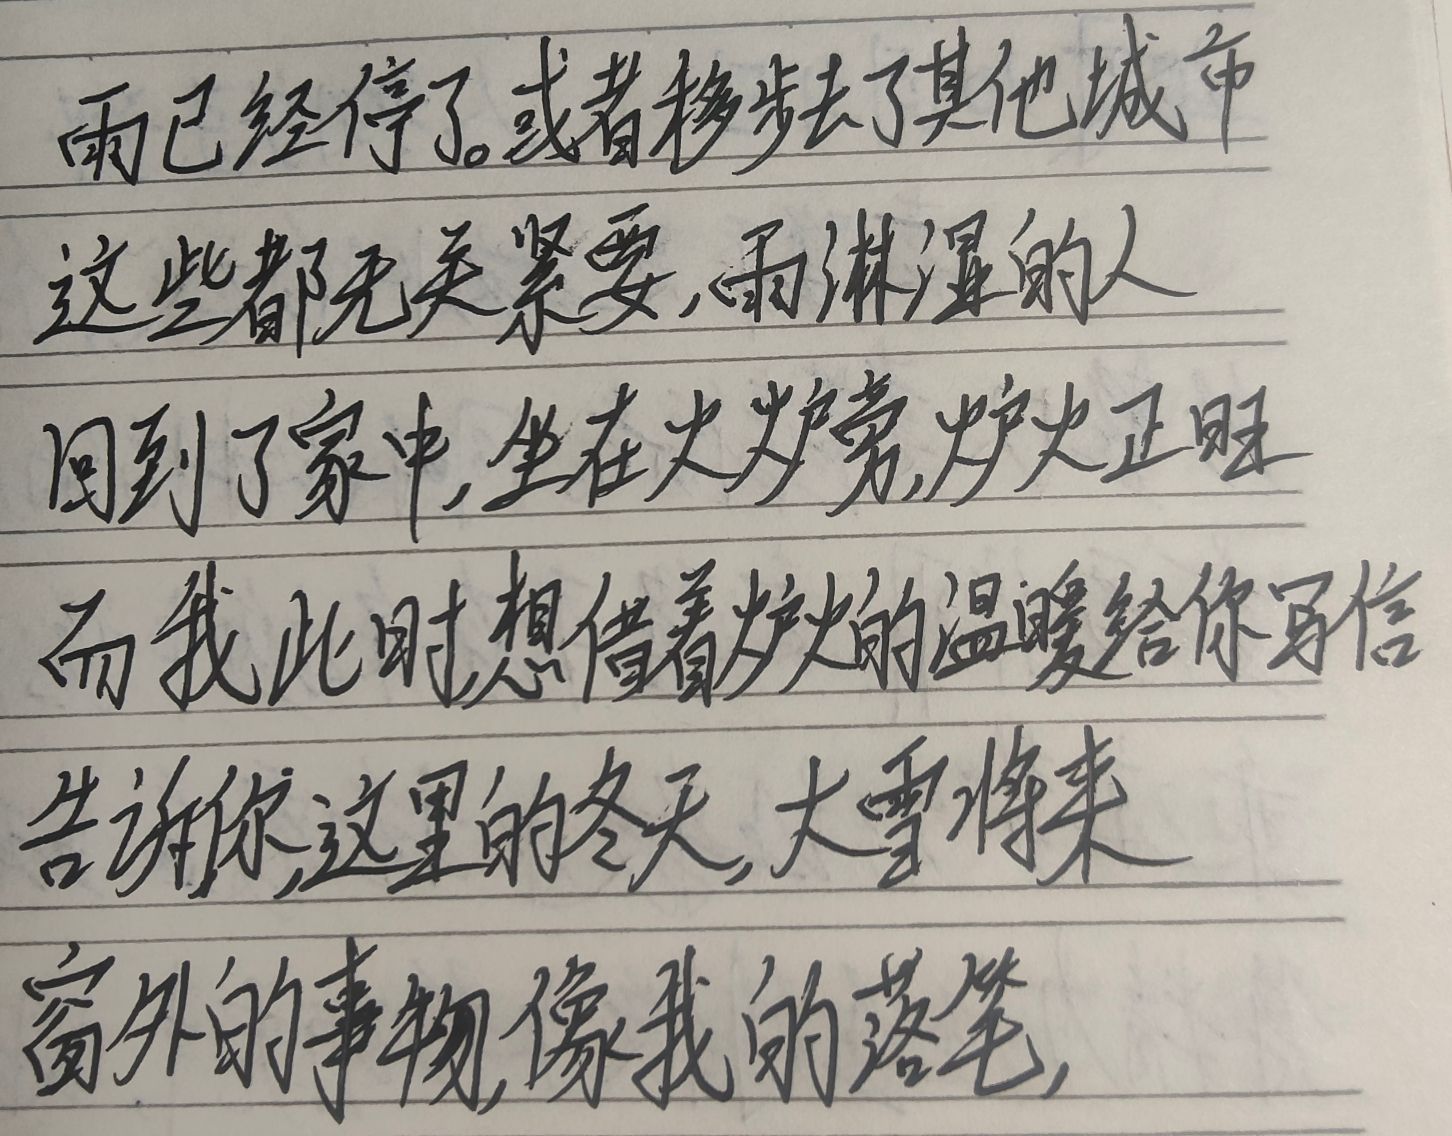 雨已经停了。或者移步去了其他城市
这些都无关紧要,雨淋湿的人
回到了家中,坐在火炉旁,炉火正旺
而我此时,想借着炉火的温暖给你写信
告诉你,这里的冬天,大雪将来
窗外的事物,像我的落笔,